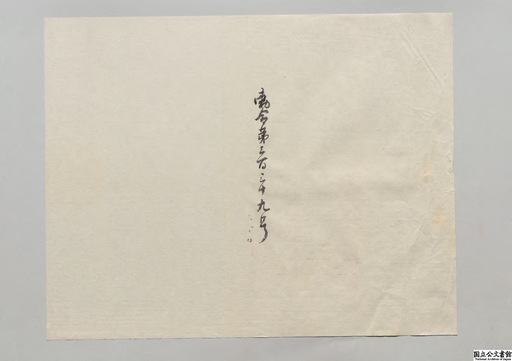 勅令第三百三十九号
国立公文書館
National Archives of Japan